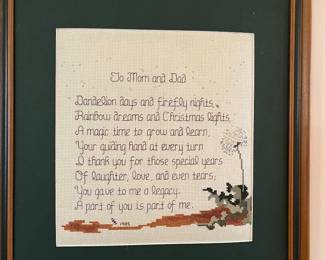 To Mom and Dad
Dandelion days and firefly nights,
Rainbow dreams and Christmas lights,
A magic time to grow and learn,
Your guiding hand at every turn
I thank you for those special years
Of laughter, love, and even tears;
You gave to me a legacy.
A part of you is part of me.